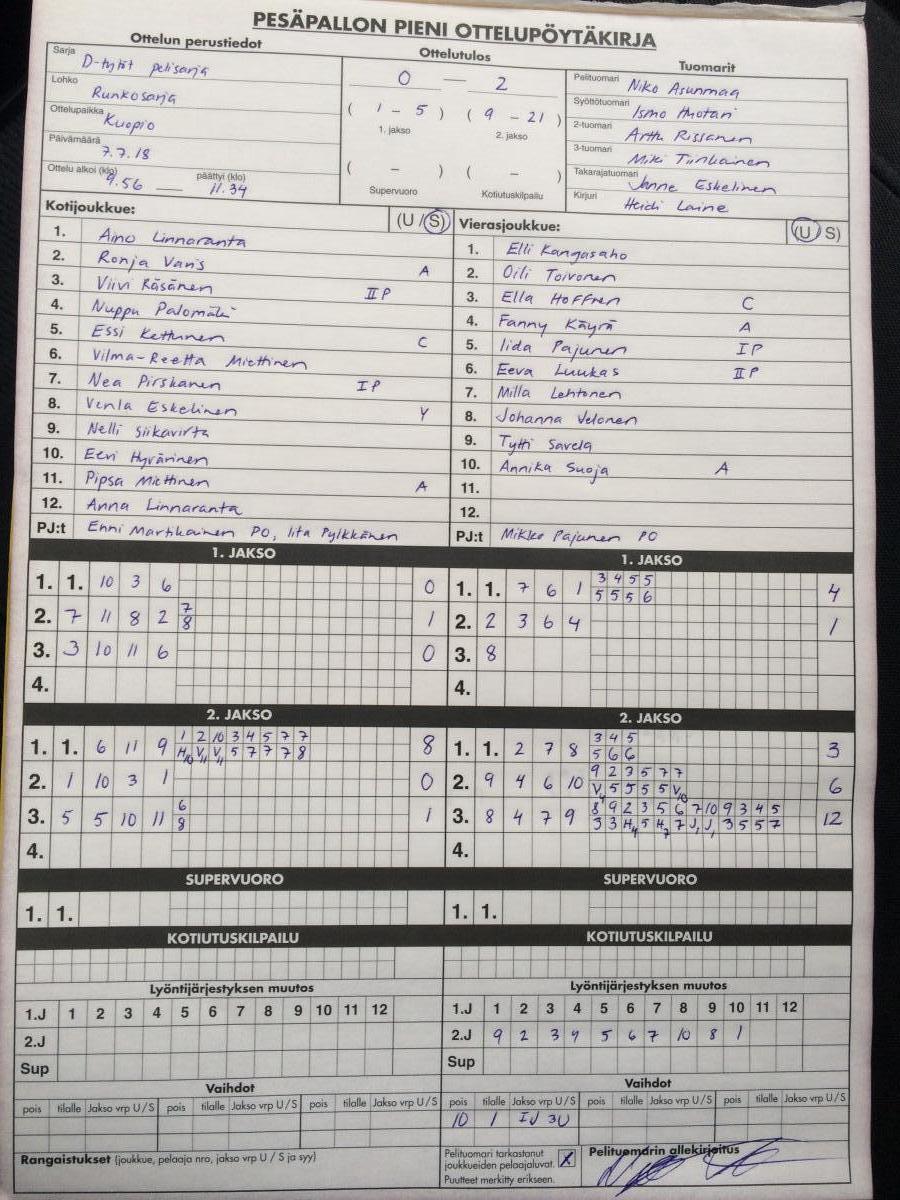 PESÄPALLON PIENI OTTELUPÖYTÄKIRJA
Ottelun perustiedot
Sarja D-tytöt pelisarja
Lohko Runkosarja
Ottelupaikka Kuopio
Päivämäärä 7.7.18
Ottelu alkoi (klo) 9.56 — päättyi (klo) 11.34
Ottelutulos
0 — 2
( 1 - 5 ) ( 9 - 21 )
1. jakso 2. jakso
( - ) ( - )
Supervuoro Kotiutuskilpailu
Tuomarit
Pelituomari Niko Asunmaa
Syöttötuomari Ismo Huotari
2-tuomari Arttu Rissanen
3-tuomari Miki Tiirikainen
Takarajatuomari Janne Eskelinen
Kirjuri Heidi Laine
Kotijoukkue: (U / S)
1. Aino Linnaranta
2. Ronja Varis A
3. Viivi Räsänen II P
4. Nuppu Palomäki
5. Essi Kettunen C
6. Vilma-Reetta Miettinen
7. Nea Pirskanen I P
8. Venla Eskelinen Y
9. Nelli Siikavirta
10. Eevi Hyvärinen
11. Pipsa Miettinen A
12. Anna Linnaranta
PJ:t Enni Martikainen PO, Iita Pylkkänen
Vierasjoukkue: (U / S)
1. Elli Kangasaho
2. Oili Toivonen
3. Ella Hoffren C
4. Fanny Käyrä A
5. Iida Pajunen I P
6. Eeva Luukas II P
7. Milla Lehtonen
8. Johanna Velonen
9. Tytti Savela
10. Annika Suoja A
11.
12.
PJ:t Mikko Pajunen PO
1. JAKSO
1. 1. 10 3 6 0
2. 7 11 8 2 7 1
8
3. 3 10 11 6 0
4.
1. JAKSO
1. 1. 7 6 1 3 4 5 5 4
5 5 5 6
2. 2 3 6 4 1
3. 8
4.
2. JAKSO
1. 1. 6 11 9 1 2 10 3 4 5 7 7 8
H10 V11 V11 5 7 7 7 8
2. 1 10 3 1 0
3. 5 5 10 11 6 1
8
4.
2. JAKSO
1. 1. 2 7 8 3 4 5 3
5 6 6
2. 9 4 6 10 9 2 3 5 7 7 6
V4 5 5 5 5 V10
3. 8 4 7 9 8 9 2 3 5 6 7 10 9 3 4 5 12
3 3 H4 5 H7 7 J1 J1 3 5 5 7
4.
SUPERVUORO
1. 1.
SUPERVUORO
1. 1.
KOTIUTUSKILPAILU
KOTIUTUSKILPAILU
Lyöntijärjestyksen muutos
1.J 1 2 3 4 5 6 7 8 9 10 11 12
2.J
Sup
Lyöntijärjestyksen muutos
1.J 1 2 3 4 5 6 7 8 9 10 11 12
2.J 9 2 3 4 5 6 7 10 8 1
Sup
Vaihdot
pois tilalle Jakso vrp U/S pois tilalle Jakso vrp U/S pois tilalle Jakso vrp U/S
Vaihdot
pois tilalle Jakso vrp U/S pois tilalle Jakso vrp U/S pois tilalle Jakso vrp U/S
10 1 IJ 3U
Rangaistukset (joukkue, pelaaja nro, jakso vrp U / S ja syy)
Pelituomari tarkastanut
joukkueiden pelaajaluvat. X
Puutteet merkitty erikseen.
Pelituomarin allekirjoitus